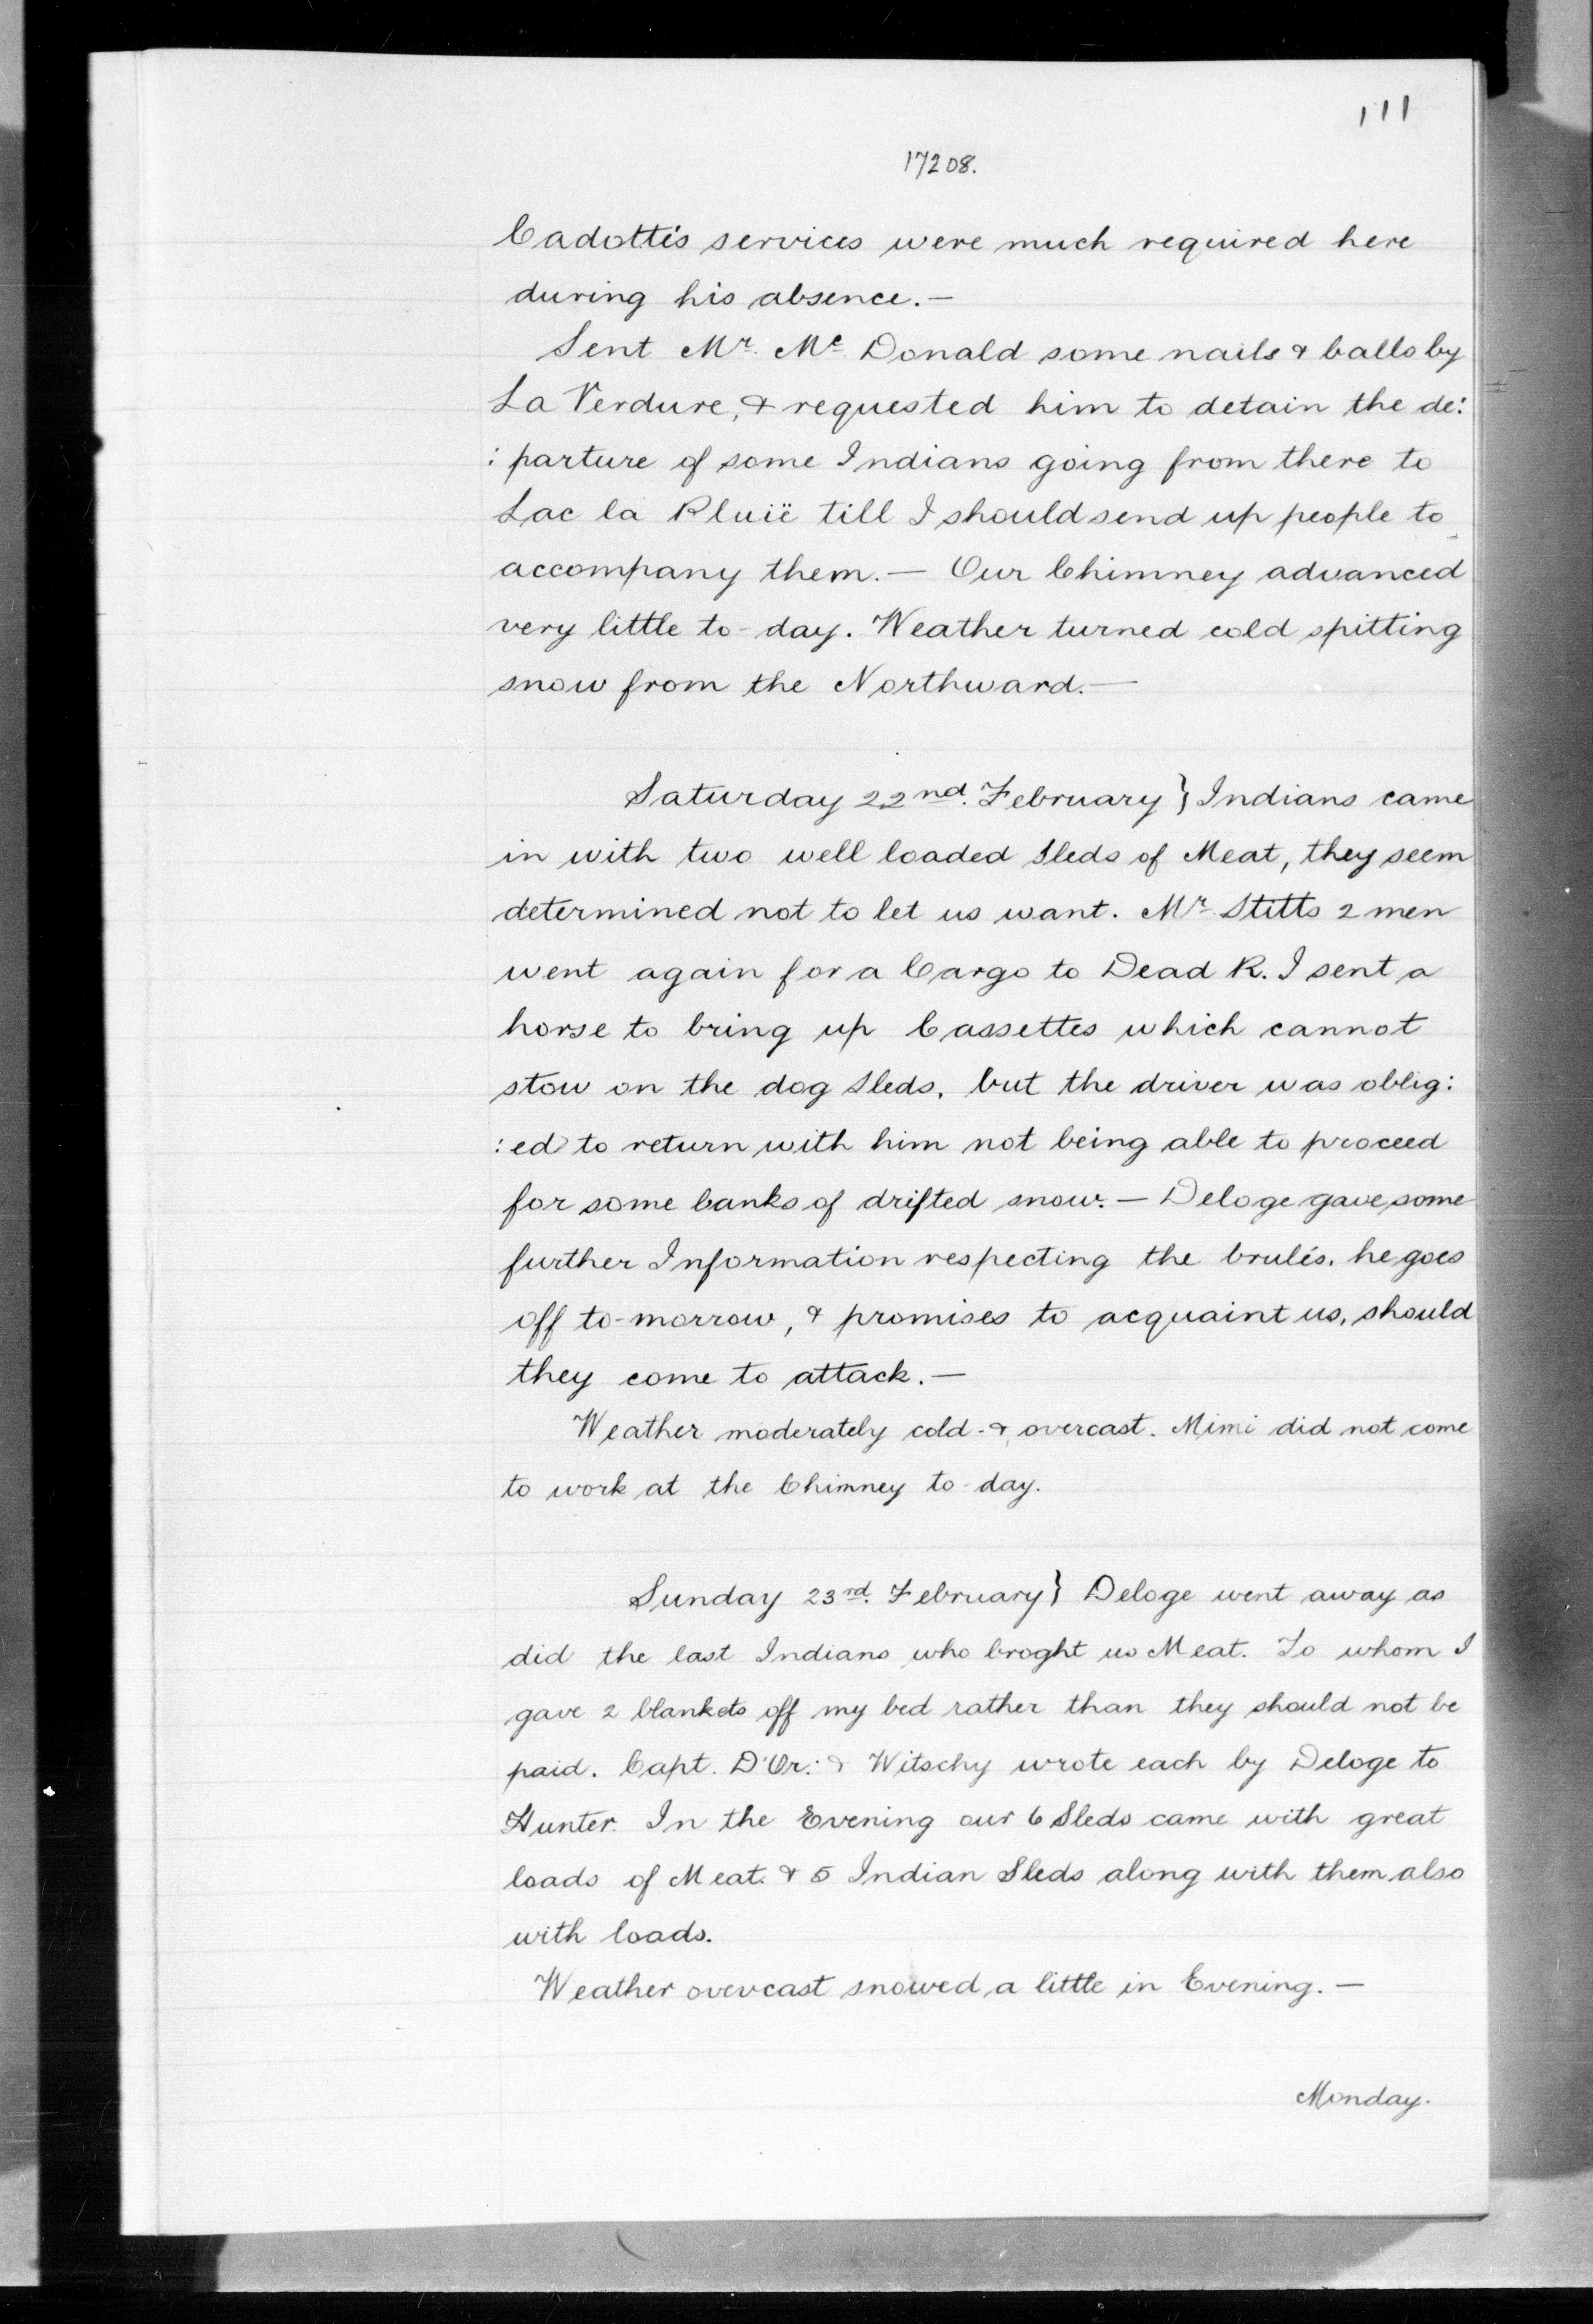 111
17208.
Cadotti's services were much required here
during his absence.—
Sent Mr. Mc. Donald some nails & balls by
La Verdure, & requested him to detain the de:
: parture of some Indians going from there to
Lac la Pluië till I should send up people to
accompany them.— Our Chimney advanced
very little to-day. Weather turned cold spitting
snow from the Northward.—
Saturday 22nd. February } Indians came
in with two well loaded Sleds of Meat, they seem
determined not to let us want. Mr. Stitts 2 men
went again for a Cargo to Dead R. I sent a
horse to bring up Cassettes which cannot
stow on the dog Sleds, but the driver was oblig:
: ed to return with him not being able to proceed
for some banks of drifted snow.— Deloge gave some
further Information respecting the brulés. he goes
off to-morrow, & promises to acquaint us, should
they come to attack.—
Weather moderately cold - & overcast. Mimi did not come
to work at the Chimney to-day.
Sunday 23rd. February } Deloge went away as
did the last Indians who broght us Meat. To whom I
gave 2 blankets off my bed rather than they should not be
paid. Capt. D'Or: & Witschy wrote each by Deloge to
Hunter. In the Evening our 6 Sleds came with great
loads of Meat. & 5 Indian Sleds along with them also
with loads.
Weather overcast snowed a little in Evening.—
Monday.